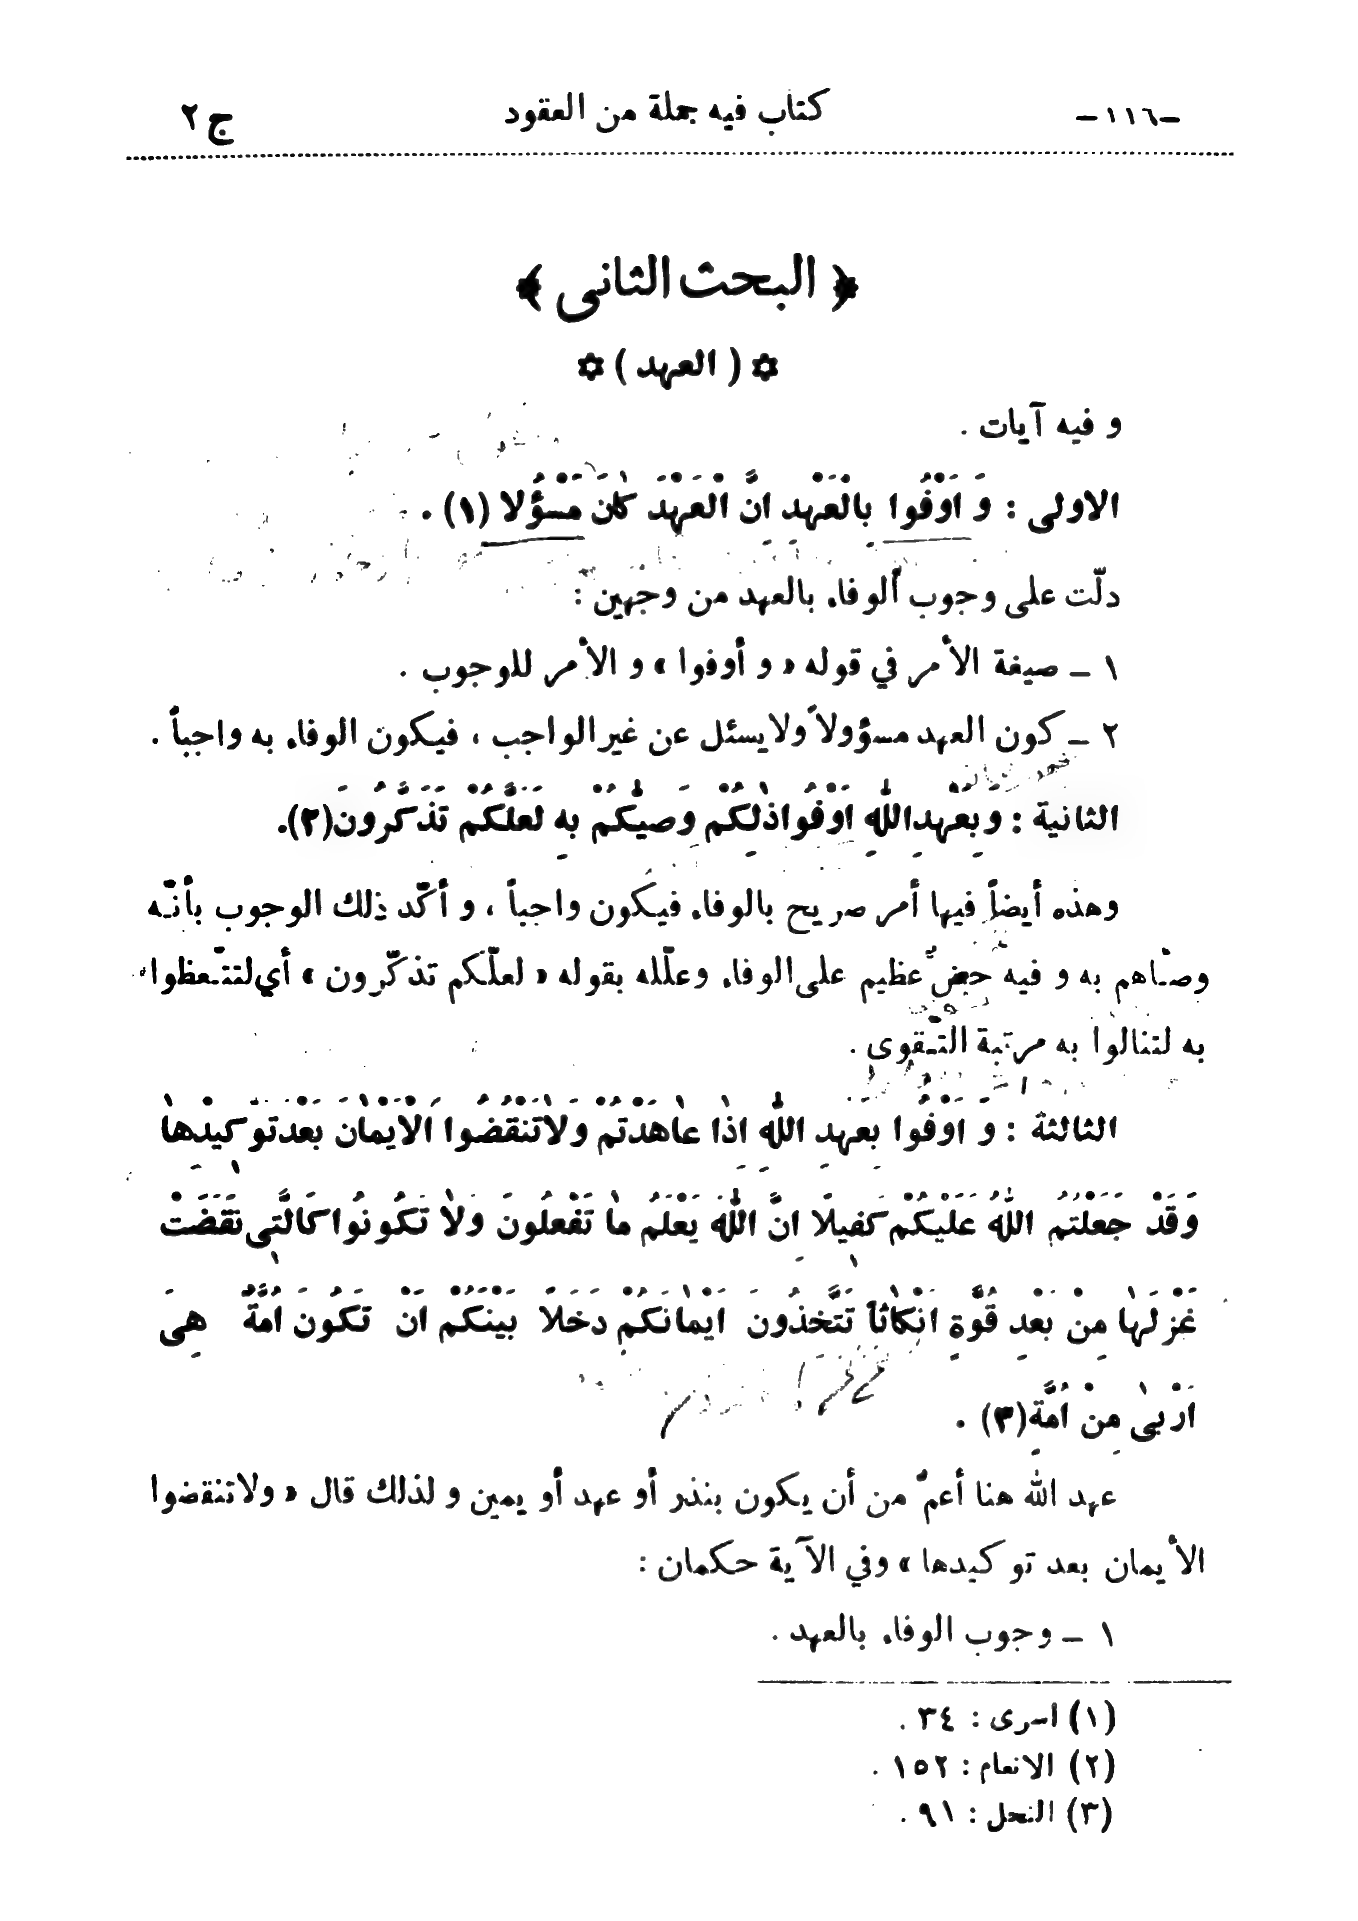 -١١٦- كتاب فيه جملة من العقود ج٢
﴿ البحث الثانى ﴾
✡ ( العهد ) ✡
و فيه آيات .
الاولى : وَ اَوْفُوا بِالْعَهْدِ اِنَّ الْعَهْدَ كٰانَ مَسْؤُلا (١) .
دلّت على وجوب الوفاء بالعهد من وجهين :
١ ـ صيغة الأمر في قوله « و أوفوا » و الأمر للوجوب .
٢ ـ كون العهد مسؤولاً ولايسئل عن غيرالواجب ، فيكون الوفاء به واجباً .
الثانية : وَ بِعَهْدِاللّٰهِ اَوْفُواذٰلِكُمْ وَصّٰيكُمْ بِهِ لَعَلَّكُمْ تَذَكَّرُونَ(٢).
وهذه أيضاً فيها أمر صريح بالوفاء فيكون واجباً ، و أكّد ذلك الوجوب بأنّه
وصّاهم به و فيه حضٌّ عظيم على الوفاء وعلّله بقوله « لعلّكم تذكّرون » أي لتتّعظوا
به لتنالوا به مرتبة التّقوى .
الثالثة : وَ اَوْفُوا بِعَهْدِ اللّٰهِ اِذٰا عٰاهَدْتُمْ وَلاٰتَنْقُضُوا الْاَيْمٰانَ بَعْدَتَوْكيدِهٰا
وَقَدْ جَعَلْتُمُ اللّٰهَ عَلَيْكُمْ كَفيلًا اِنَّ اللّٰهَ يَعْلَمُ مٰا تَفْعَلُونَ وَلاٰ تَكُونُوا كَالَّتي نَقَضَتْ
غَزْلَهٰا مِنْ بَعْدِ قُوَّةٍ اَنْكٰاثاً تَتَّخِذُونَ اَيْمٰانَكُمْ دَخَلًا بَيْنَكُمْ اَنْ تَكُونَ اُمَّةٌ هِىَ
اَرْبىٰ مِنْ اُمَّةٍ(٣) .
عهد الله هنا أعمّ من أن يكون بنذر أو عهد أو يمين و لذلك قال « ولاتنقضوا
الأيمان بعد توكيدها » وفي الآية حكمان :
١ ـ وجوب الوفاء بالعهد .
(١) اسرى : ٣٤ .
(٢) الانعام : ١٥٢ .
(٣) النحل : ٩١ .